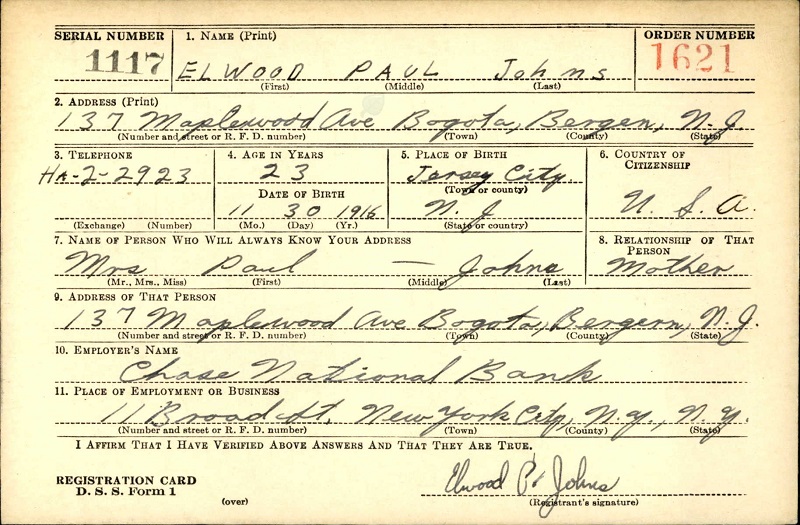 SERIAL NUMBER 1. NAME (Print) ORDER NUMBER
1117 ELWOOD PAUL Johns 1621
(First) (Middle) (Last)
2. ADDRESS (Print)
137 Maplewood Ave Bogota, Bergen, N. J
(Number and street or R. F. D. number) (Town) (County) (State)
3. TELEPHONE 4. AGE IN YEARS 5. PLACE OF BIRTH 6. COUNTRY OF CITIZENSHIP
HA-2-2923 23 Jersey City,
(Town or county)
DATE OF BIRTH
11 30 1916 N. J U. S. A.
(Exchange) (Number) (Mo.) (Day) (Yr.) (State or country)
7. NAME OF PERSON WHO WILL ALWAYS KNOW YOUR ADDRESS 8. RELATIONSHIP OF THAT PERSON
Mrs Paul — Johns Mother
(Mr., Mrs., Miss) (First) (Middle) (Last)
9. ADDRESS OF THAT PERSON
137 Maplewood Ave Bogota, Bergern, N. J.
(Number and street or R. F. D. number) (Town) (County) (State)
10. EMPLOYER'S NAME
Chase National Bank
11. PLACE OF EMPLOYMENT OR BUSINESS
11 Broad St. New York City, N. Y., N. Y.
(Number and street or R. F. D. number) (Town) (County) (State)
I AFFIRM THAT I HAVE VERIFIED ABOVE ANSWERS AND THAT THEY ARE TRUE.
REGISTRATION CARD
D. S. S. Form 1 Elwood P. Johns
(over) (Registrant's signature)